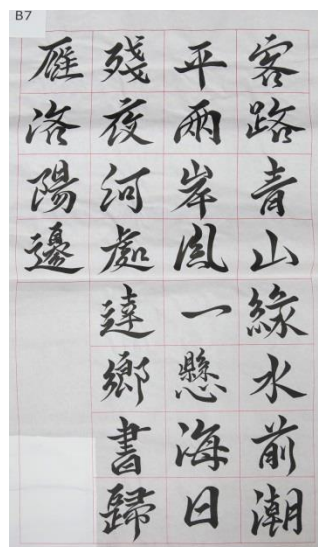 B7
客路青山綠水前潮
平兩岸風一懸海日
殘夜河處達鄉書歸
雁洛陽邊